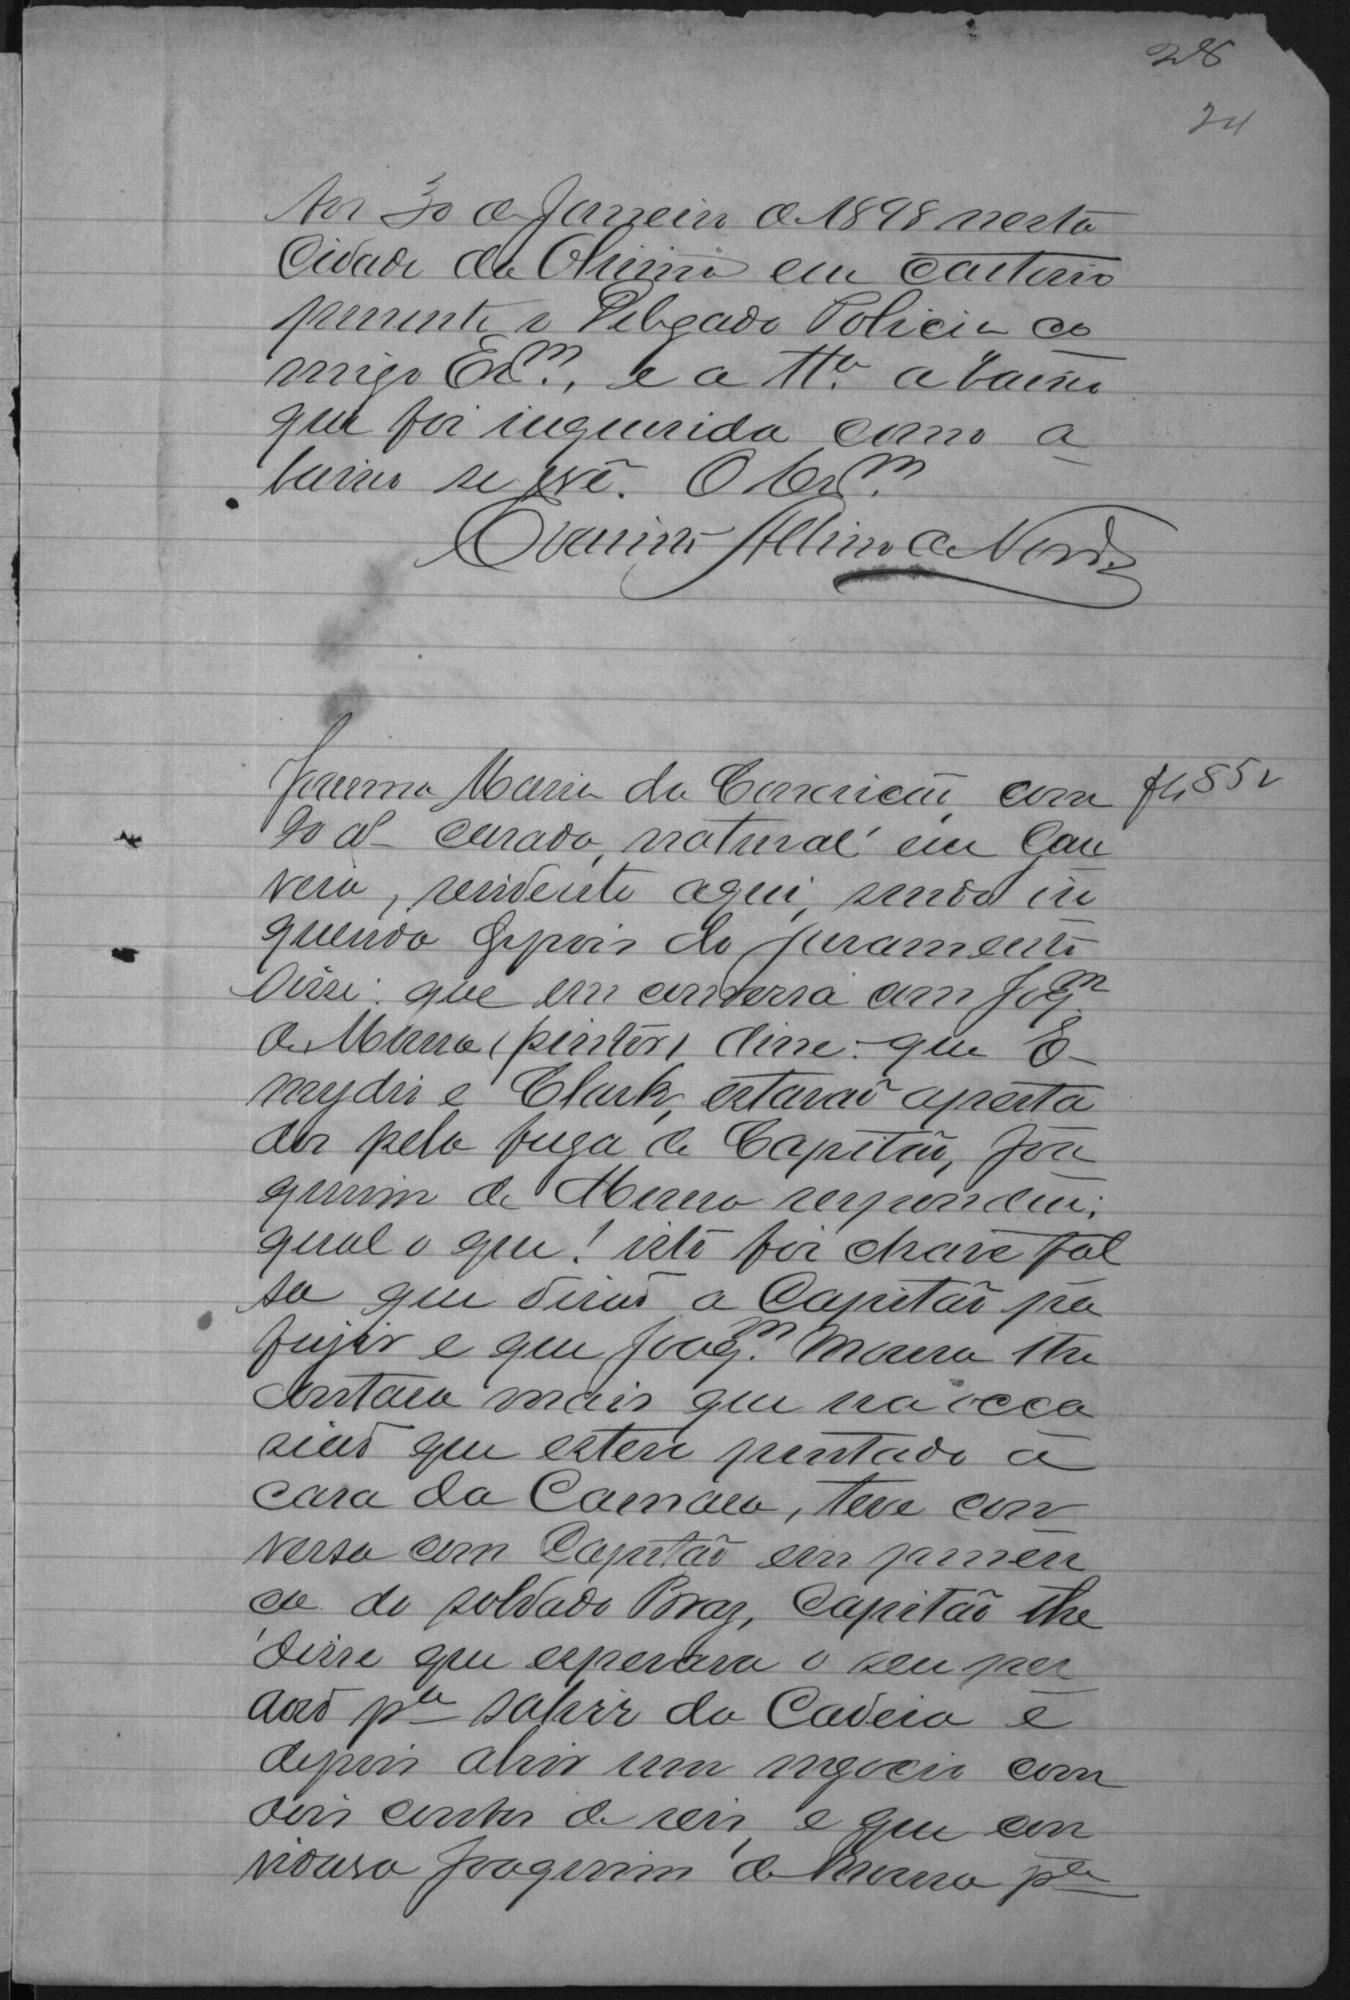 28
24
Aos 30 de Janeiro de 1898 nesta
Cidade da Christina em cartorio
presente o Delegado Policia co
migo Escm., e a ttª. abaixo
que foi inquerida como a
baixo se vê. O Escm.
de Noro
Joanna Maria da Conceicão, com fls 85v
annos casada, natural em Cau
vera, residente aqui, sendo in
querida depois do juramento
disse: que em conversa com Joqm
de Moura (pintor) disse: que E
mydio e Clark, estavaõ aperta
dos pela fuga de Capitão, Joa
quim de Moura respondeu:
qual o que! isto foi chave fal
sa que deraõ a Capitaõ pra
fugir e que Joaqm. Moura lhe
contara mais que na occa
siaõ que esteve pintado a
casa da Camara, teve con
versa com Capitaõ em presen
ca do soldado Braz, Capitaõ lhe
disse que esperava o seu per
daõ pla sahir da Cadeia e
depois abrir um negocio com
dois contos de reis, e que con
vidava Joaquim de Moura pla